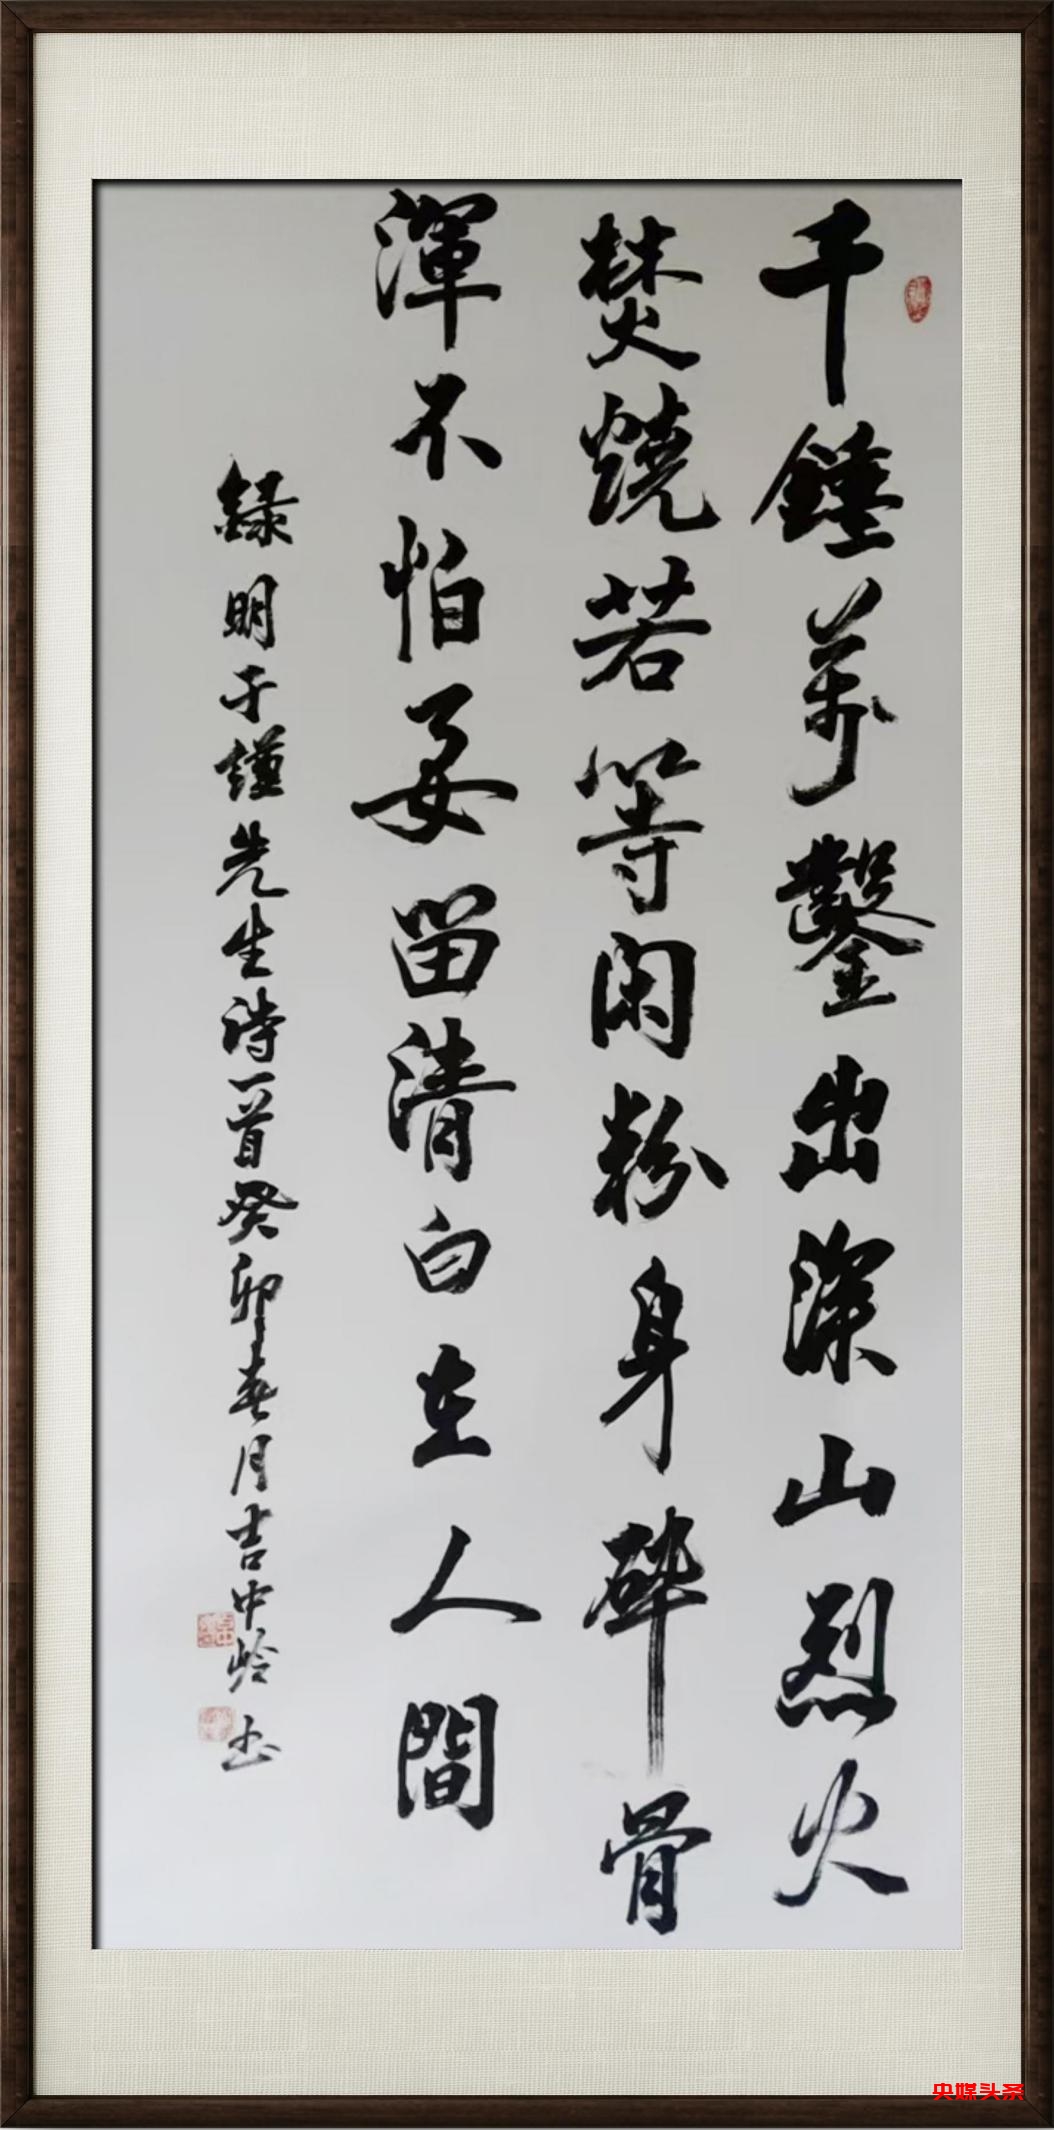 千錘萬鑿出深山烈火
焚燒若等閑粉身碎骨
渾不怕要留清白在人間
録明于謹先生詩一首癸卯春月吉中岭书
央媒头条